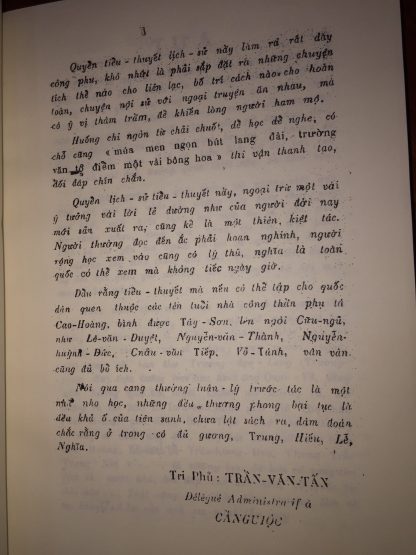 3
Quyển tiểu-thuyết lịch-sử nầy làm ra rất dầy
công phu, khó nhứt là phải sắp đặt ra những chuyện
tích thế nào cho liên lạc, bố trí cách nào cho hoàn
toàn, chuyện nội sử với ngoại truyện ăn nhau, mà
có ý vị thâm trầm, để khiến lòng người ham mộ.
Huống chi ngôn từ chải chuốt, dễ học dễ nghe, có
chỗ cũng « múa men ngọn bút lang đài, trường
văn tô điểm một vài bông hoa » thi vận thanh tạo,
đối đáp chín chắn.
Quyển lịch-sử tiểu-thuyết nầy, ngoại trừ một vài
ý tưởng vài lời lẽ dường như của người đời nay
mới sản xuất ra; cũng kể là một thiên, kiệt tác.
Người thường đọc đến ắc phải hoan nghinh, người
rộng học xem vào cũng có lý thú, nghĩa là toàn
quốc có thể xem mà không tiếc ngày giờ.
Dầu rằng tiểu-thuyết mà nếu có thể tập cho quốc
dân quen thuộc các tên tuổi nhà công thần phụ tá
Cao-Hoàng, bình được Tây-Sơn, lên ngôi Cửu-ngũ,
như Lê-văn-Duyệt, Nguyễn-văn-Thành, Nguyễn-
huỳnh-Đức, Châu-văn Tiếp, Võ-Tánh, vân vân
cũng đủ bổ ích.
Nói qua cang thường luân-lý trước tác là một
nhà nho học, những đều thương phong bại tục là
đều khả ố của tiên sanh, chưa lật sách ra, dám đoán
chắc rằng ở trong có đủ gương, Trung, Hiếu, Lễ,
Nghĩa.
Tri Phủ: TRẦN-VĂN-TẤN
Délégué Administratif à
CẦNGIUỘC